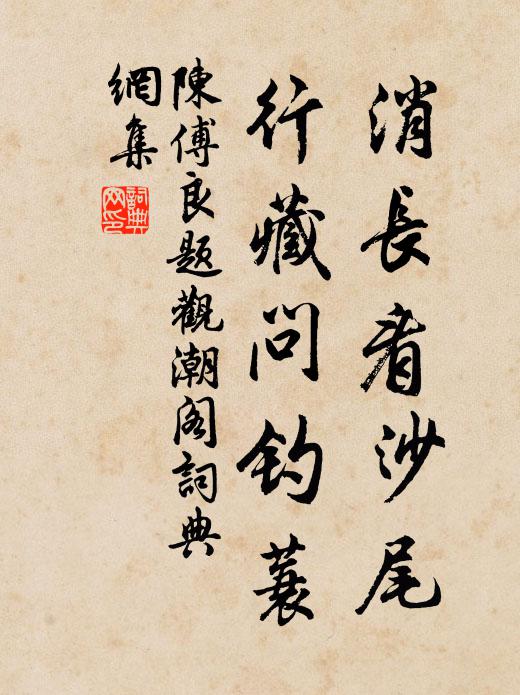 消長看沙尾
行藏問釣蓑
陳傅良題觀潮阁詞典
網集
詞典網印